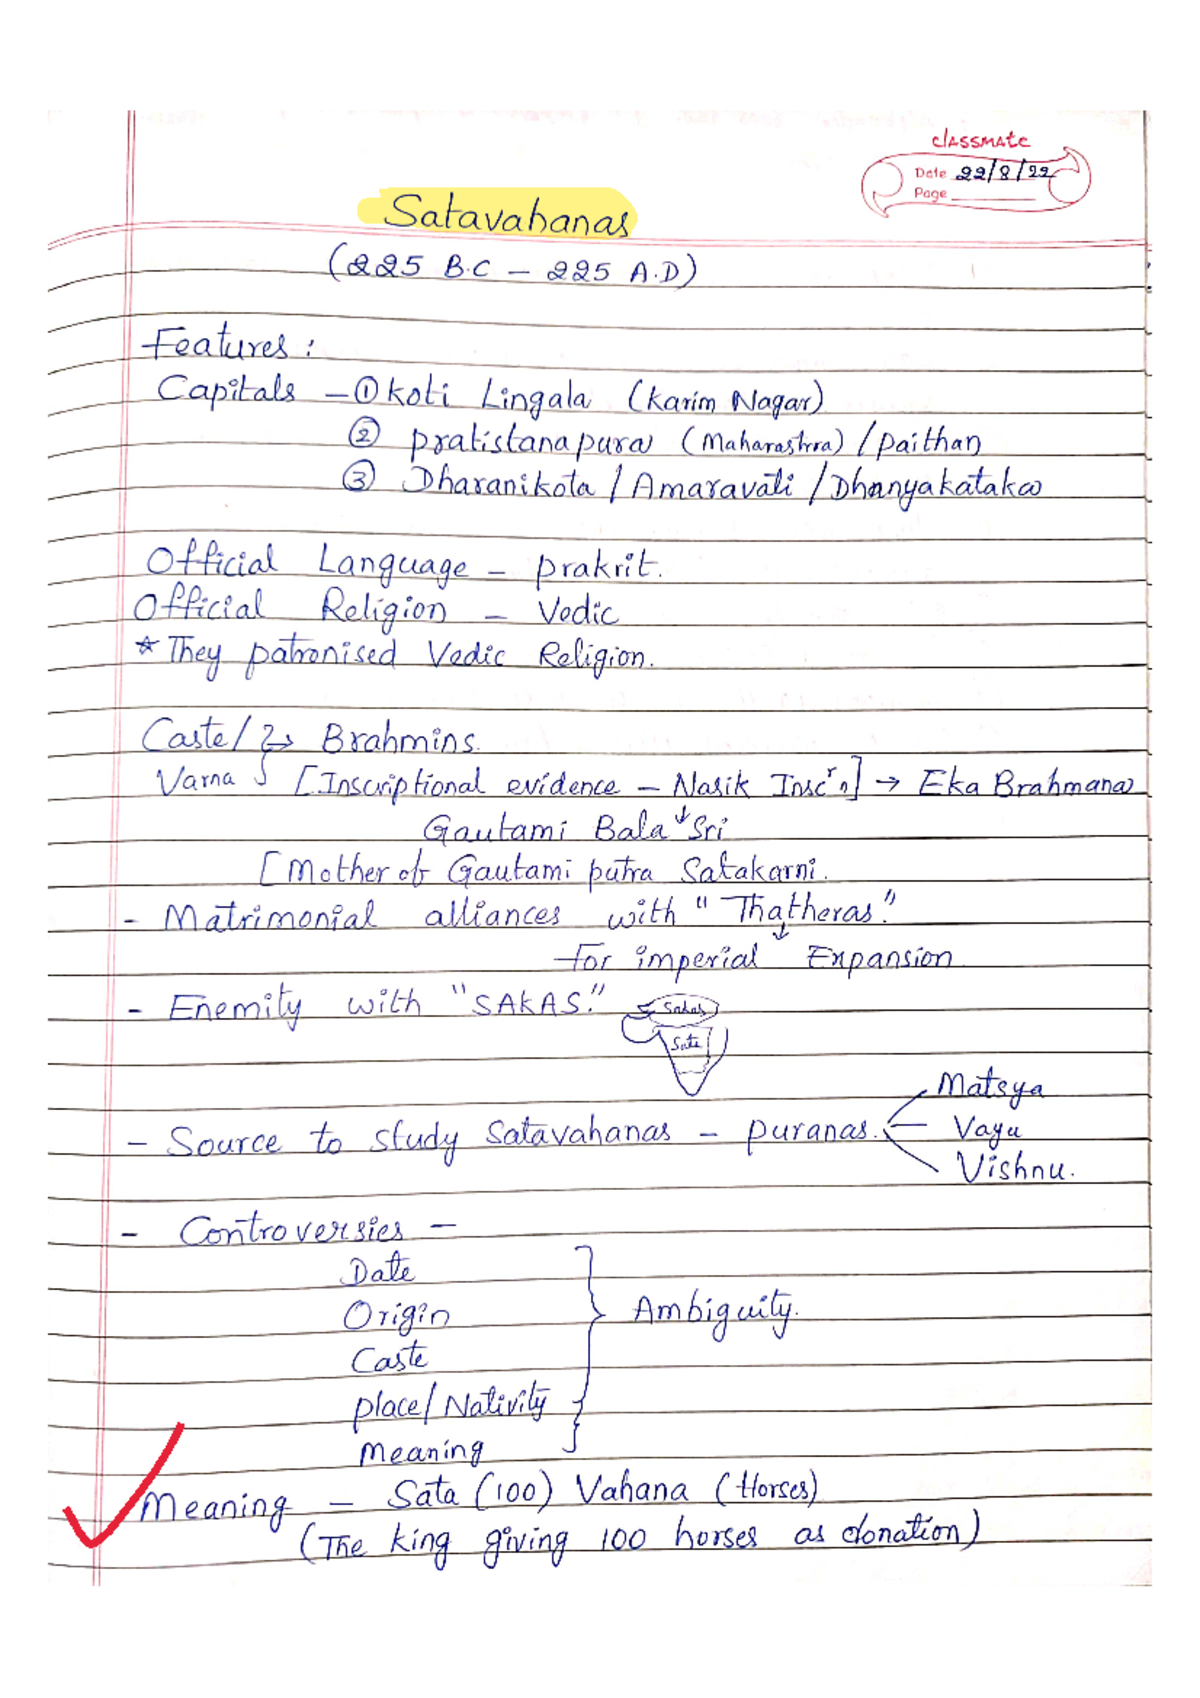 classmate
Date 22/8/22
Page
Satavahanas
(225 B.C – 225 A.D)
Features :
Capitals – ① Koti Lingala (Karim Nagar)
② Pratistanapura (Maharashtra) / Paithan
③ Dharanikota / Amaravati / Dhanyakataka
Official Language – Prakrit.
Official Religion – Vedic
* They patronised Vedic Religion.
Caste/ → Brahmins.
Varna [Inscriptional evidence – Nasik Inscrn] → Eka Brahmana
Gautami Bala Sri
[Mother of Gautami putra Satakarni.
- Matrimonial alliances with "Thatheras."
for imperial Expansion
- Enemity with "SAKAS."
Sakas
Sata
Matsya
- Source to study Satavahanas – Puranas. Vayu
Vishnu.
- Controversies –
Date
Origin Ambiguity.
Caste
Place/Nativity
Meaning
Meaning – Sata (100) Vahana (Horses)
(The king giving 100 horses as donation)